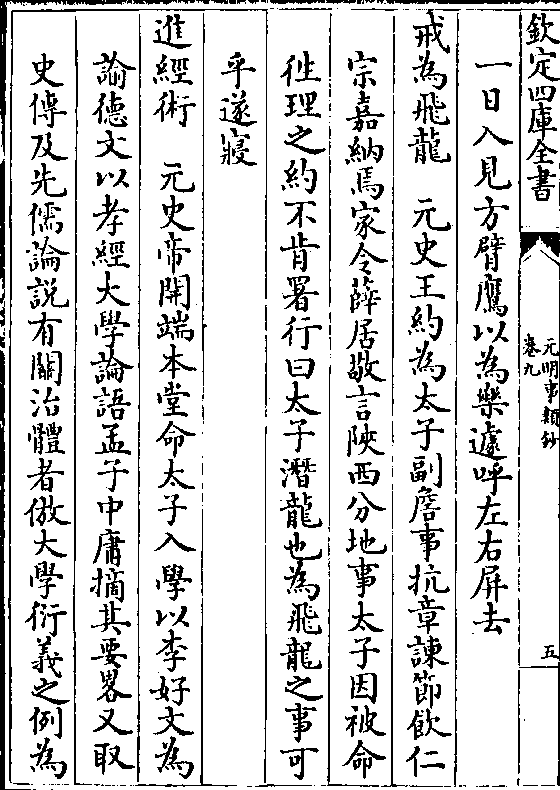 欽定四庫全書
元明事類鈔
卷九
五
一日入見方臂鷹以為樂遽呼左右屏去
戒為飛龍　元史王約為太子副詹事抗章諫節飲仁
宗嘉納焉家令薛居敬言陜西分地事太子因被命
往理之約不肯署行曰太子潛龍也為飛龍之事可
乎遂寢
進經術　元史帝開端本堂命太子入學以李好文為
諭德文以孝經大學論語孟子中庸摘其要畧又取
史傳及先儒論說有關治體者倣大學衍義之例為